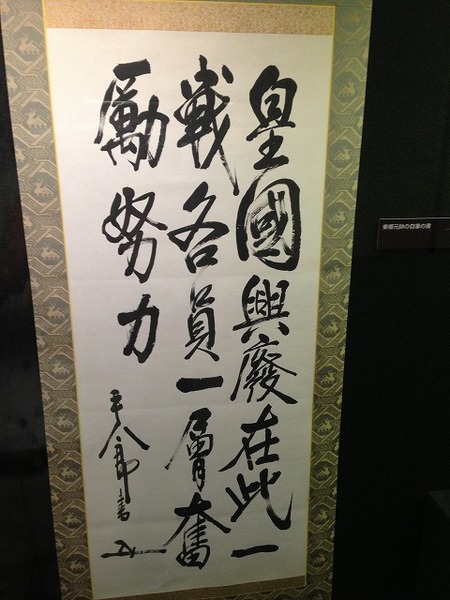 皇國興廢在此一
戦各員一層奮
勵努力
平八郎書
東郷元帥の自筆の書